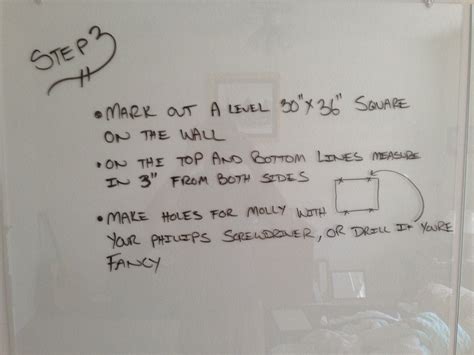 STEP 3
• MARK OUT A LEVEL 30"X36" SQUARE
ON THE WALL
• ON THE TOP AND BOTTOM LINES MEASURE
IN 3" FROM BOTH SIDES
• MAKE HOLES FOR MOLLY WITH
YOUR PHILIPS SCREWDRIVER, OR DRILL IF YOU'RE
FANCY